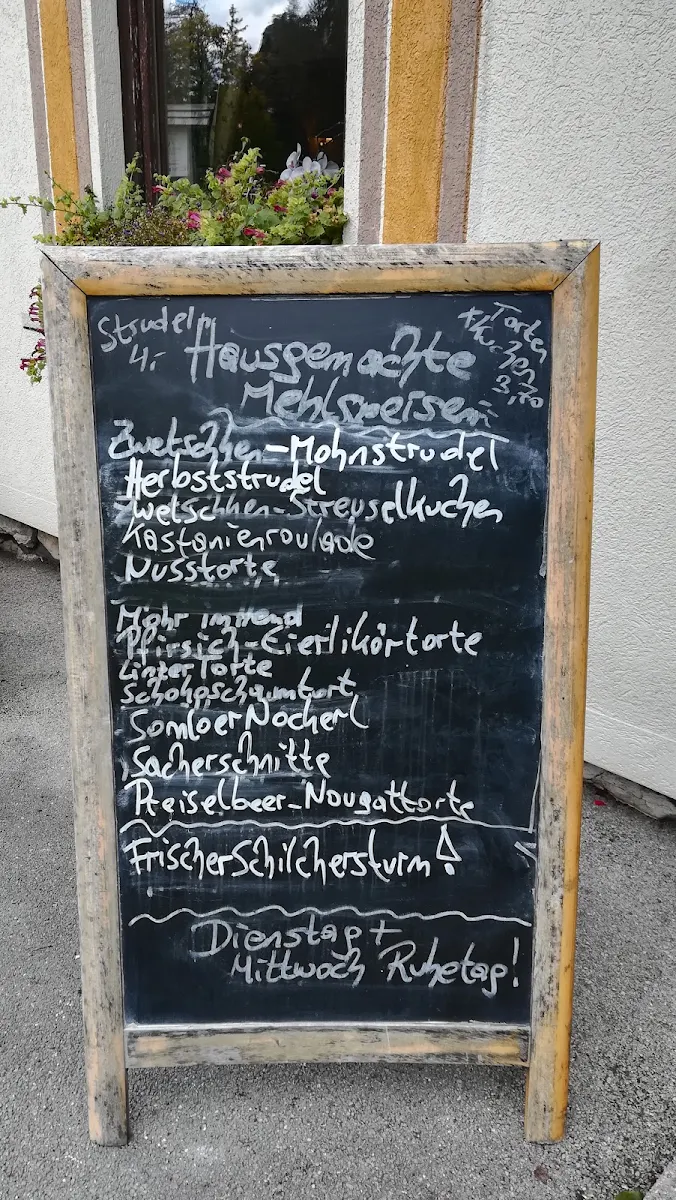 Strudel
4,-
Hausgemachte
Mehlspeisen
Torten
+Kuchen
3,70
Zwetschken-Mohnstrudel
Herbststrudel
Zwetschken-Streuselkuchen
Kastanienroulade
Nusstorte
Mohr im Hemd
Pfirsich-Eierlikörtorte
Linzer Torte
Schokoschaumtort
Somloer Nockerl
Sacherschnitte
Preiselbeer-Nougattorte
Frischer Schilchersturm!
Dienstag +
Mittwoch Ruhetag!